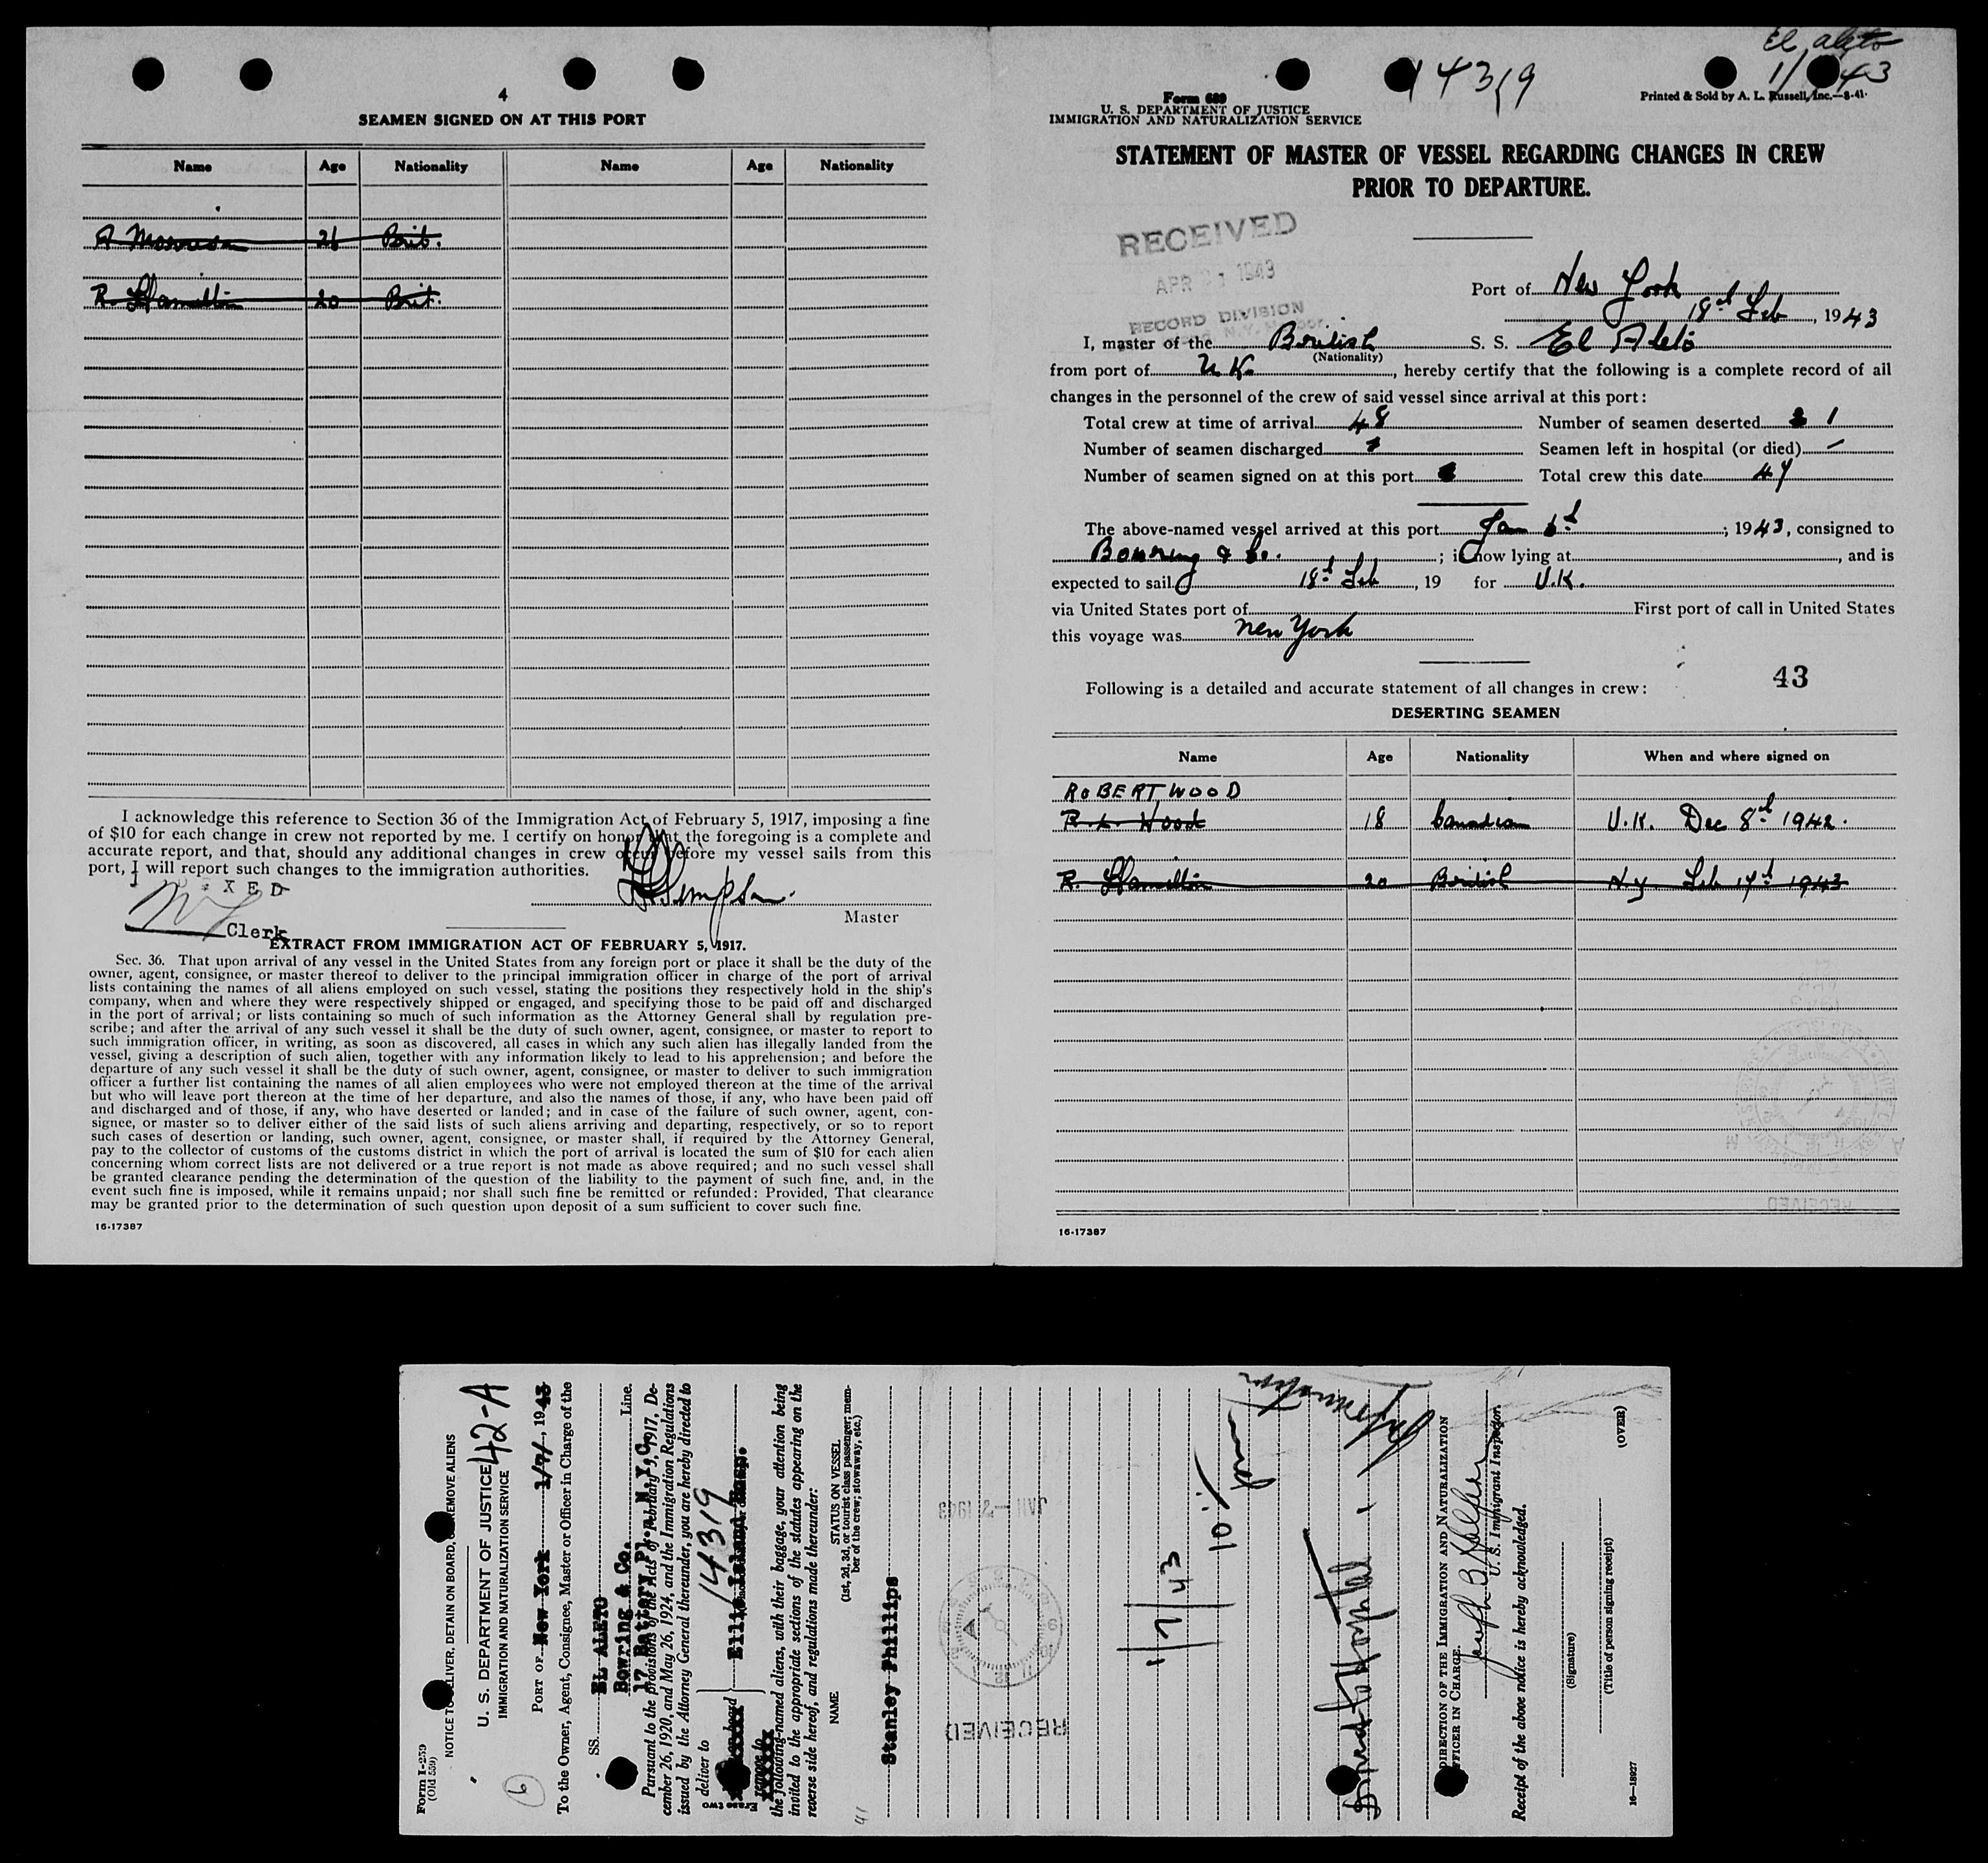 4
SEAMEN SIGNED ON AT THIS PORT
Name Age Nationality Name Age Nationality
A Morrison 26 Brit.
R. Hamilton 20 Brit.
I acknowledge this reference to Section 36 of the Immigration Act of February 5, 1917, imposing a fine
of $10 for each change in crew not reported by me. I certify on honor that the foregoing is a complete and
accurate report, and that, should any additional changes in crew occur before my vessel sails from this
port, I will report such changes to the immigration authorities.
Simpson
Master
Clerk
EXTRACT FROM IMMIGRATION ACT OF FEBRUARY 5, 1917.
Sec. 36. That upon arrival of any vessel in the United States from any foreign port or place it shall be the duty of the
owner, agent, consignee, or master thereof to deliver to the principal immigration officer in charge of the port of arrival
lists containing the names of all aliens employed on such vessel, stating the positions they respectively hold in the ship's
company, when and where they were respectively shipped or engaged, and specifying those to be paid off and discharged
in the port of arrival; or lists containing so much of such information as the Attorney General shall by regulation pre-
scribe; and after the arrival of any such vessel it shall be the duty of such owner, agent, consignee, or master to report to
such immigration officer, in writing, as soon as discovered, all cases in which any such alien has illegally landed from the
vessel, giving a description of such alien, together with any information likely to lead to his apprehension; and before the
departure of any such vessel it shall be the duty of such owner, agent, consignee, or master to deliver to such immigration
officer a further list containing the names of all alien employees who were not employed thereon at the time of the arrival
but who will leave port thereon at the time of her departure, and also the names of those, if any, who have been paid off
and discharged and of those, if any, who have deserted or landed; and in case of the failure of such owner, agent, con-
signee, or master so to deliver either of the said lists of such aliens arriving and departing, respectively, or so to report
such cases of desertion or landing, such owner, agent, consignee, or master shall, if required by the Attorney General,
pay to the collector of customs of the customs district in which the port of arrival is located the sum of $10 for each alien
concerning whom correct lists are not delivered or a true report is not made as above required; and no such vessel shall
be granted clearance pending the determination of the question of the liability to the payment of such fine, and, in the
event such fine is imposed, while it remains unpaid; nor shall such fine be remitted or refunded: Provided, That clearance
may be granted prior to the determination of such question upon deposit of a sum sufficient to cover such fine.
16-17387
El Aleto
14319
Form 689
U. S. DEPARTMENT OF JUSTICE
IMMIGRATION AND NATURALIZATION SERVICE
Printed & Sold by A. L. Russell, Inc.—8-41
STATEMENT OF MASTER OF VESSEL REGARDING CHANGES IN CREW
PRIOR TO DEPARTURE.
RECEIVED
APR 1943
RECORD DIVISION
Port of New York
18th Feb, 1943
I, master of the British S. S. El Aleto
(Nationality)
from port of U K, hereby certify that the following is a complete record of all
changes in the personnel of the crew of said vessel since arrival at this port:
Total crew at time of arrival 48 Number of seamen deserted 1
Number of seamen discharged Seamen left in hospital (or died) —
Number of seamen signed on at this port Total crew this date 47
The above-named vessel arrived at this port Jan 6th; 1943, consigned to
Bowring & Co.; is now lying at, and is
expected to sail 18th Feb, 19 for U.K.
via United States port of First port of call in United States
this voyage was New York
43
Following is a detailed and accurate statement of all changes in crew:
DESERTING SEAMEN
Name Age Nationality When and where signed on
ROBERT WOOD
R. L. Wood 18 Canadian U.K. Dec 8th 1942.
R. Hamilton 20 British N.Y Feb 17th 1943
RECEIVED
16-17387
Form I-259
(Old 559)
NOTICE TO DELIVER, DETAIN ON BOARD, OR REMOVE ALIENS
U. S. DEPARTMENT OF JUSTICE 42-A
IMMIGRATION AND NATURALIZATION SERVICE
6
PORT OF New York 1/7/, 1943
To the Owner, Agent, Consignee, Master or Officer in Charge of the
SS. EL ALETO
Bowring & Co. Line.
17 Battery Pl., N.Y.C.
Pursuant to the provisions of the Acts of February 5, 1917, De-
cember 26, 1920, and May 26, 1924, and the Immigration Regulations
issued by the Attorney General thereunder, you are hereby directed to
14319
deliver to
Ellis Island Hosp.
remove to
the following-named aliens, with their baggage, your attention being
invited to the appropriate sections of the statutes appearing on the
reverse side hereof, and regulations made thereunder:
NAME STATUS ON VESSEL
(1st, 2d, 3d, or tourist class passenger; mem-
ber of the crew; stowaway, etc.)
41
Stanley Phillips
RECEIVED
JAN 1943
1/7/43
Hospital
DIRECTION OF THE IMMIGRATION AND NATURALIZATION
OFFICER IN CHARGE.
Joseph B.
U. S. Immigrant Inspector.
Receipt of the above notice is hereby acknowledged.
(Signature)
(Title of person signing receipt)
16—18927 (OVER)